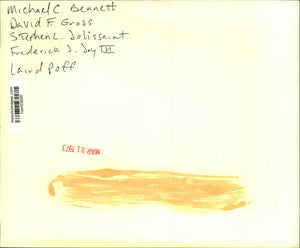 Michael C. Bennett
David F Gross
Stephen L. Jolissaint
Frederick J. Joy III
Laird Poff
MAR 21 1973